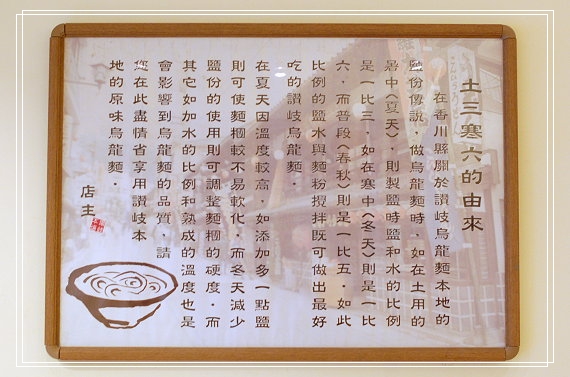 土三寒六的由來
在香川縣關於讚岐烏龍麵本地的
鹽份傳說，做烏龍麵時，如在土用的
暑中〈夏天〉則製鹽時鹽和水的比例
是一比三，如在寒中〈冬天〉則是一比
六，而普段〈春秋〉則是一比五，如此
比例的鹽水與麵粉攪拌既可做出最好
吃的讚岐烏龍麵．
在夏天因溫度較高，如添加多一點鹽
則可使麵糰較不易軟化，而冬天減少
鹽份的使用則可調整麵糰的硬度．而
其它如加水的比例和熟成的溫度也是
會影響到烏龍麵的品質，請
您在此盡情省享用讚岐本
地的原味烏龍麵．
店主